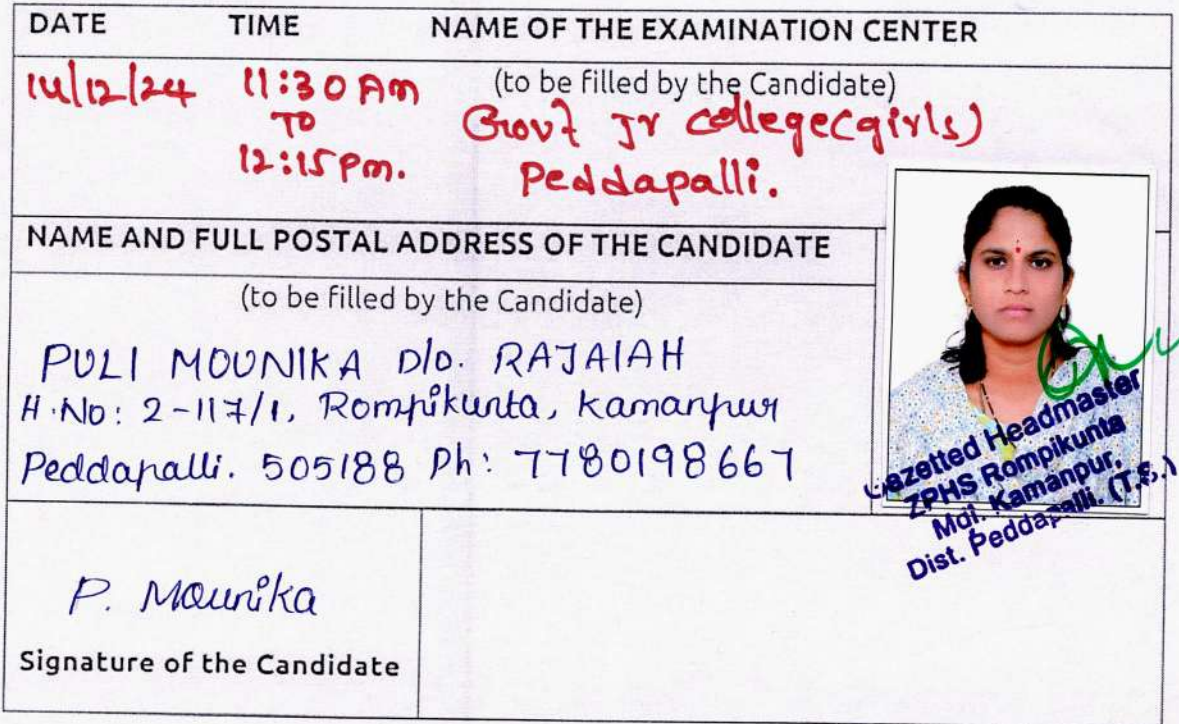 DATE TIME NAME OF THE EXAMINATION CENTER
(to be filled by the Candidate)
14/12/24 11:30 Am Govt Jr college(girls)
TO
12:15 pm. Peddapalli.
NAME AND FULL POSTAL ADDRESS OF THE CANDIDATE
(to be filled by the Candidate)
PULI MOUNIKA D/o. RAJAIAH
H.No: 2-117/1, Rompikunta, Kamanpur
Peddapalli. 505188 Ph: 7780198667
Gazetted Headmaster
ZPHS Rompikunta
Mdl. Kamanpur,
Dist. Peddapalli. (T.S.)
P. Mounika
Signature of the Candidate